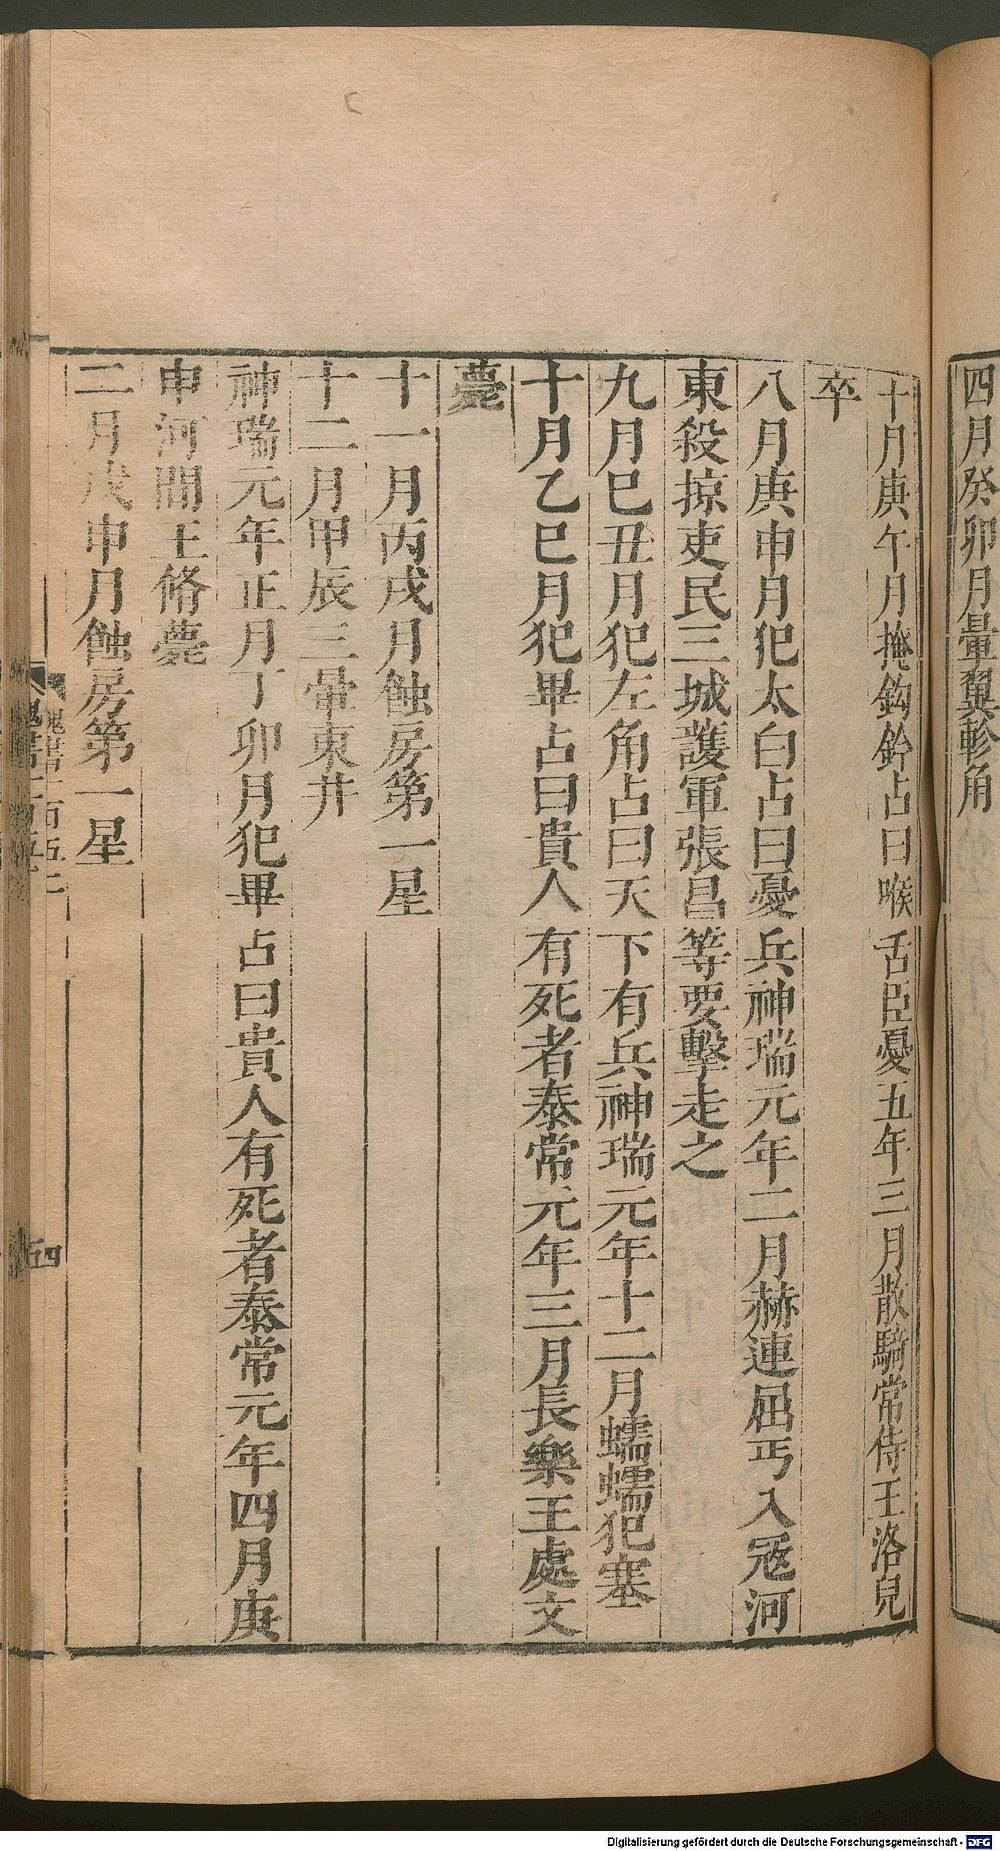 四月癸卯月暈翼軫角
十月庚午月掩鈎鈐占曰喉舌臣憂五年三月散騎常侍王洛兒
卒
八月庚申月犯太白占曰憂兵神瑞元年二月赫連屈丐入冦河
東殺掠吏民三城護軍張昌等要擊走之
九月巳丑月犯左角占曰天下有兵神瑞元年十二月蠕蠕犯塞
十月乙巳月犯畢占曰貴人有死者泰常元年三月長樂王處文
薨
十一月丙戌月蝕房第一星
十二月甲辰三暈東井
神瑞元年正月丁卯月犯畢占曰貴人有死者泰常元年四月庚
申河間王脩薨
二月戊申月蝕房第一星
魏書一百五二
四
Digitalisierung gefördert durch die Deutsche Forschungsgemeinschaft - DFG